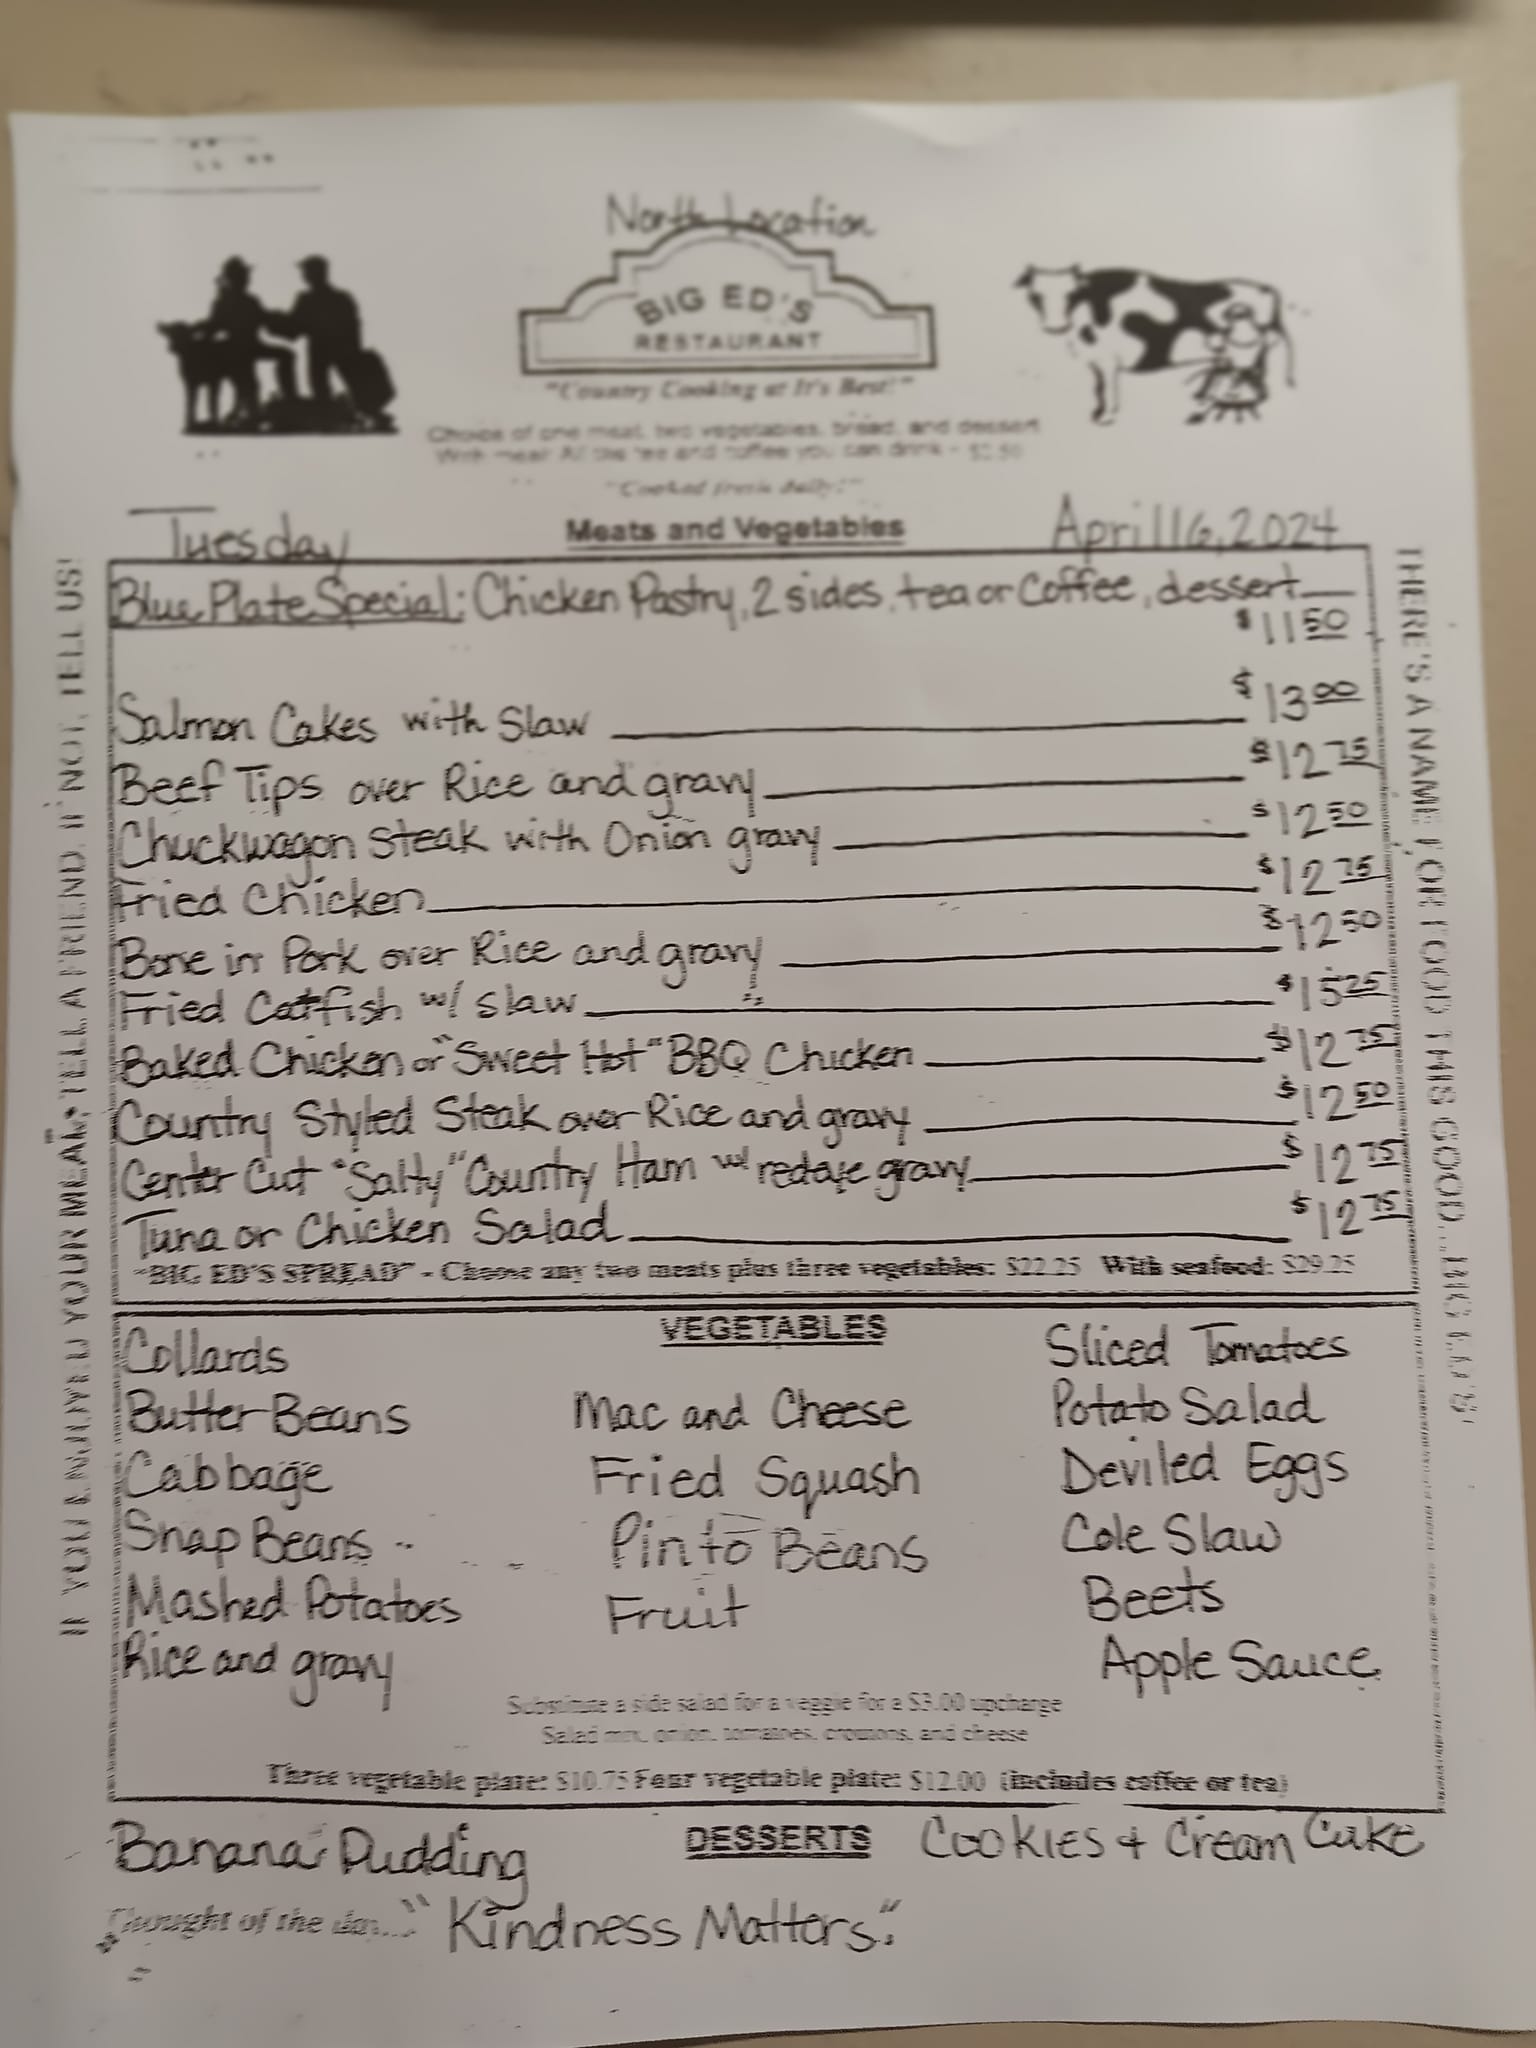 North Location
BIG ED'S
RESTAURANT
"Country Cooking at It's Best!"
Choice of one meat, two vegetables, bread, and dessert
With meal: All the tea and coffee you can drink - $2.50
"Cooked fresh daily!"
Tuesday Meats and Vegetables April 16, 2024
Blue Plate Special: Chicken Pastry, 2 sides, tea or Coffee, dessert
$11.50
Salmon Cakes with Slaw $13.00
Beef Tips over Rice and gravy $12.75
Chuckwagon Steak with Onion gravy $12.50
Fried Chicken $12.75
Bone in Pork over Rice and gravy $12.50
Fried Catfish w/ slaw $15.25
Baked Chicken or "Sweet Hot" BBQ Chicken $12.75
Country Styled Steak over Rice and gravy $12.50
Center Cut "Salty" Country Ham w/ redeye gravy $12.75
Tuna or Chicken Salad $12.75
"BIG ED'S SPREAD" - Choose any two meats plus three vegetables: $22.25 With seafood: $29.25
VEGETABLES
Collards Sliced Tomatoes
Butter Beans Mac and Cheese Potato Salad
Cabbage Fried Squash Deviled Eggs
Snap Beans Pinto Beans Cole Slaw
Mashed Potatoes Fruit Beets
Rice and gravy Apple Sauce
Substitute a side salad for a veggie for a $3.00 upcharge
Salad mix, onion, tomatoes, croutons, and cheese
Three vegetable plate: $10.75 Four vegetable plate: $12.00 (includes coffee or tea)
Banana Pudding DESSERTS Cookies + Cream Cake
Thought of the day... "Kindness Matters."
IF YOU ENJOYED YOUR MEAL, TELL A FRIEND. IF NOT, TELL US!
THERE'S A NAME FOR FOOD THIS GOOD...BIG ED'S!